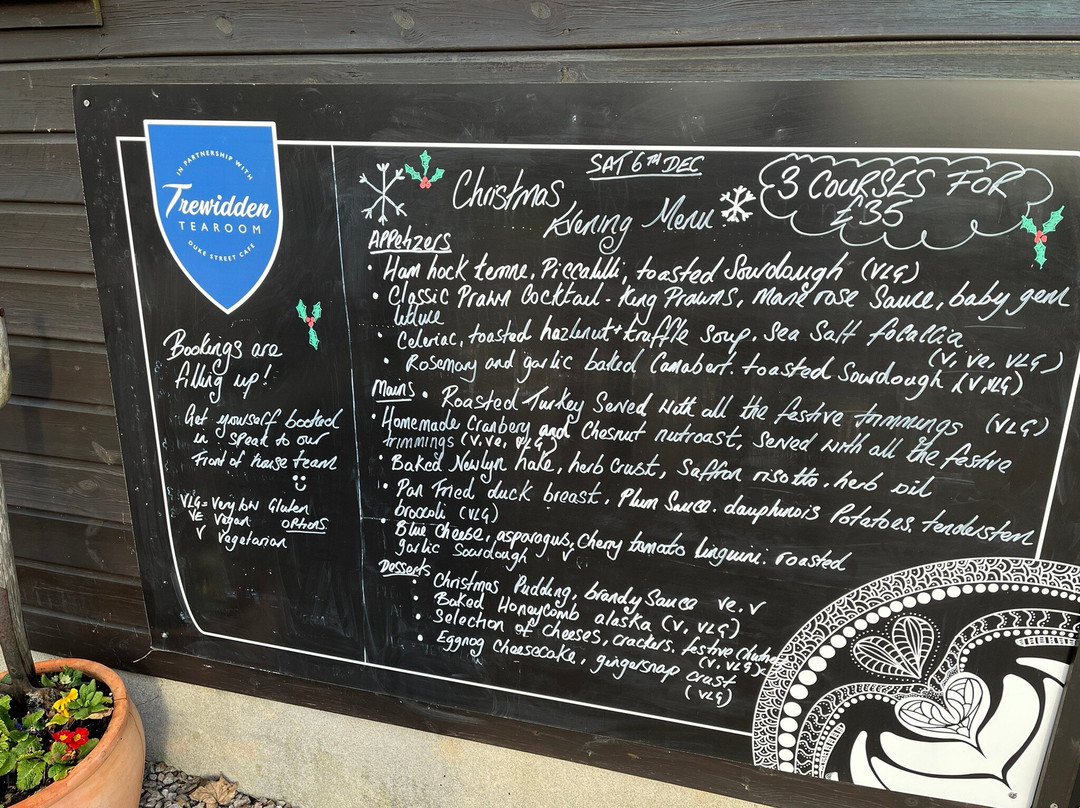 IN PARTNERSHIP WITH
Trewidden
TEAROOM
DUKE STREET CAFE
Bookings are
filling up!
Get yourself booked
in + speak to our
front of house team
VLG = Very low Gluten
VE Vegan options
V Vegetarian
SAT 6TH DEC
Christmas
Evening Menu
3 COURSES FOR
£35
Appetizers
• Ham hock terrine, Piccalilli, toasted Sourdough (VLG)
• Classic Prawn Cocktail - King Prawns, Marie rose Sauce, baby gem
lettuce
Celeriac, toasted hazelnut + truffle soup. Sea Salt focaccia
(V, Ve, VLG)
• Rosemary and garlic baked Camabert. toasted Sourdough (V,VLG)
Mains • Roasted Turkey Served with all the festive trimmings (VLG)
• Homemade Cranbery and Chesnut nutroast, Served with all the festive
trimmings (V.Ve, VLG)
• Baked Newlyn hake, herb crust, Saffron risotto. herb oil
• Pan Fried duck breast, Plum Sauce. dauphinois Potatoes, tenderstem
brocoli (VLG)
• Blue Cheese, asparagus, Cherry tomato linguini. roasted
garlic Sourdough V
Desserts
• Christmas Pudding, brandy Sauce Ve. V
• Baked Honeycomb alaska (V, VLG)
• Selection of Cheeses, crackers, festive Chutney
(V, VLG)
• Eggnog Cheesecake, gingersnap crust
(VLG)